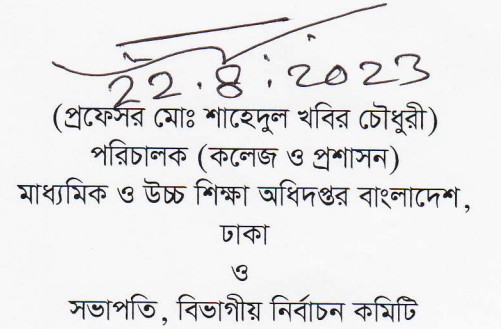 22.8.2023
(প্রফেসর মোঃ শাহেদুল খবির চৌধুরী)
পরিচালক (কলেজ ও প্রশাসন)
মাধ্যমিক ও উচ্চ শিক্ষা অধিদপ্তর বাংলাদেশ,
ঢাকা
ও
সভাপতি, বিভাগীয় নির্বাচন কমিটি